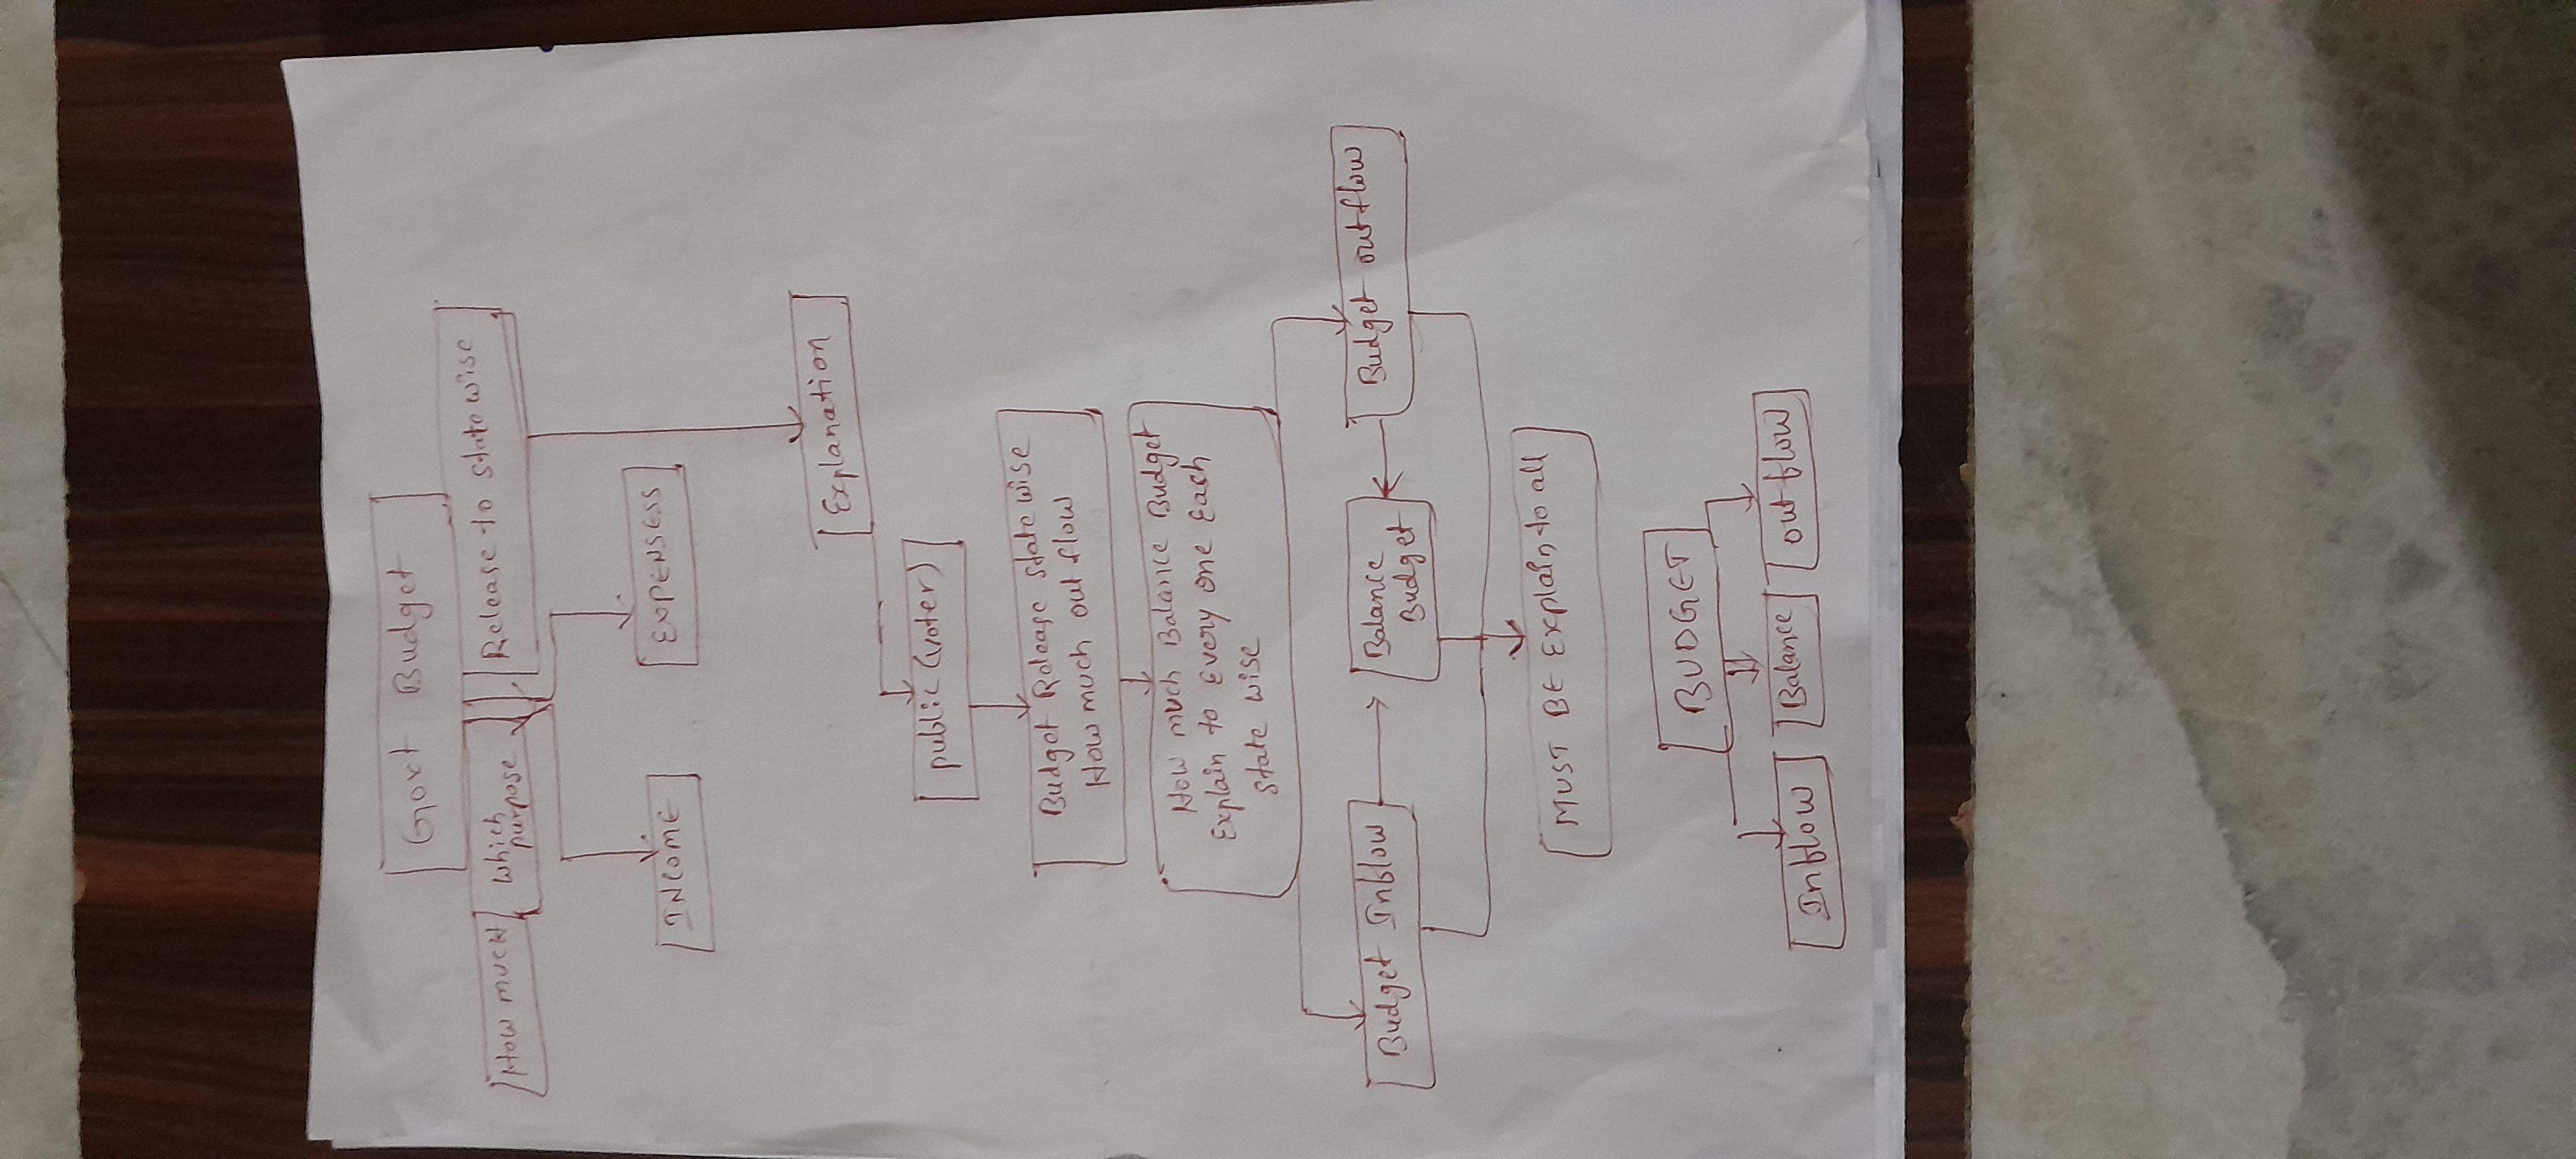 Govt Budget
How much
which
purpose
Release to statewise
INCOME
EXPENSESS
Explanation
public (voter)
Budget Release statewise
How much out flow
How much Balance Budget
Explain to Every one Each
state wise
Budget Inflow
Balance
Budget
Budget outflow
MUST BE Explain to all
BUDGET
Inflow
Balance
outflow